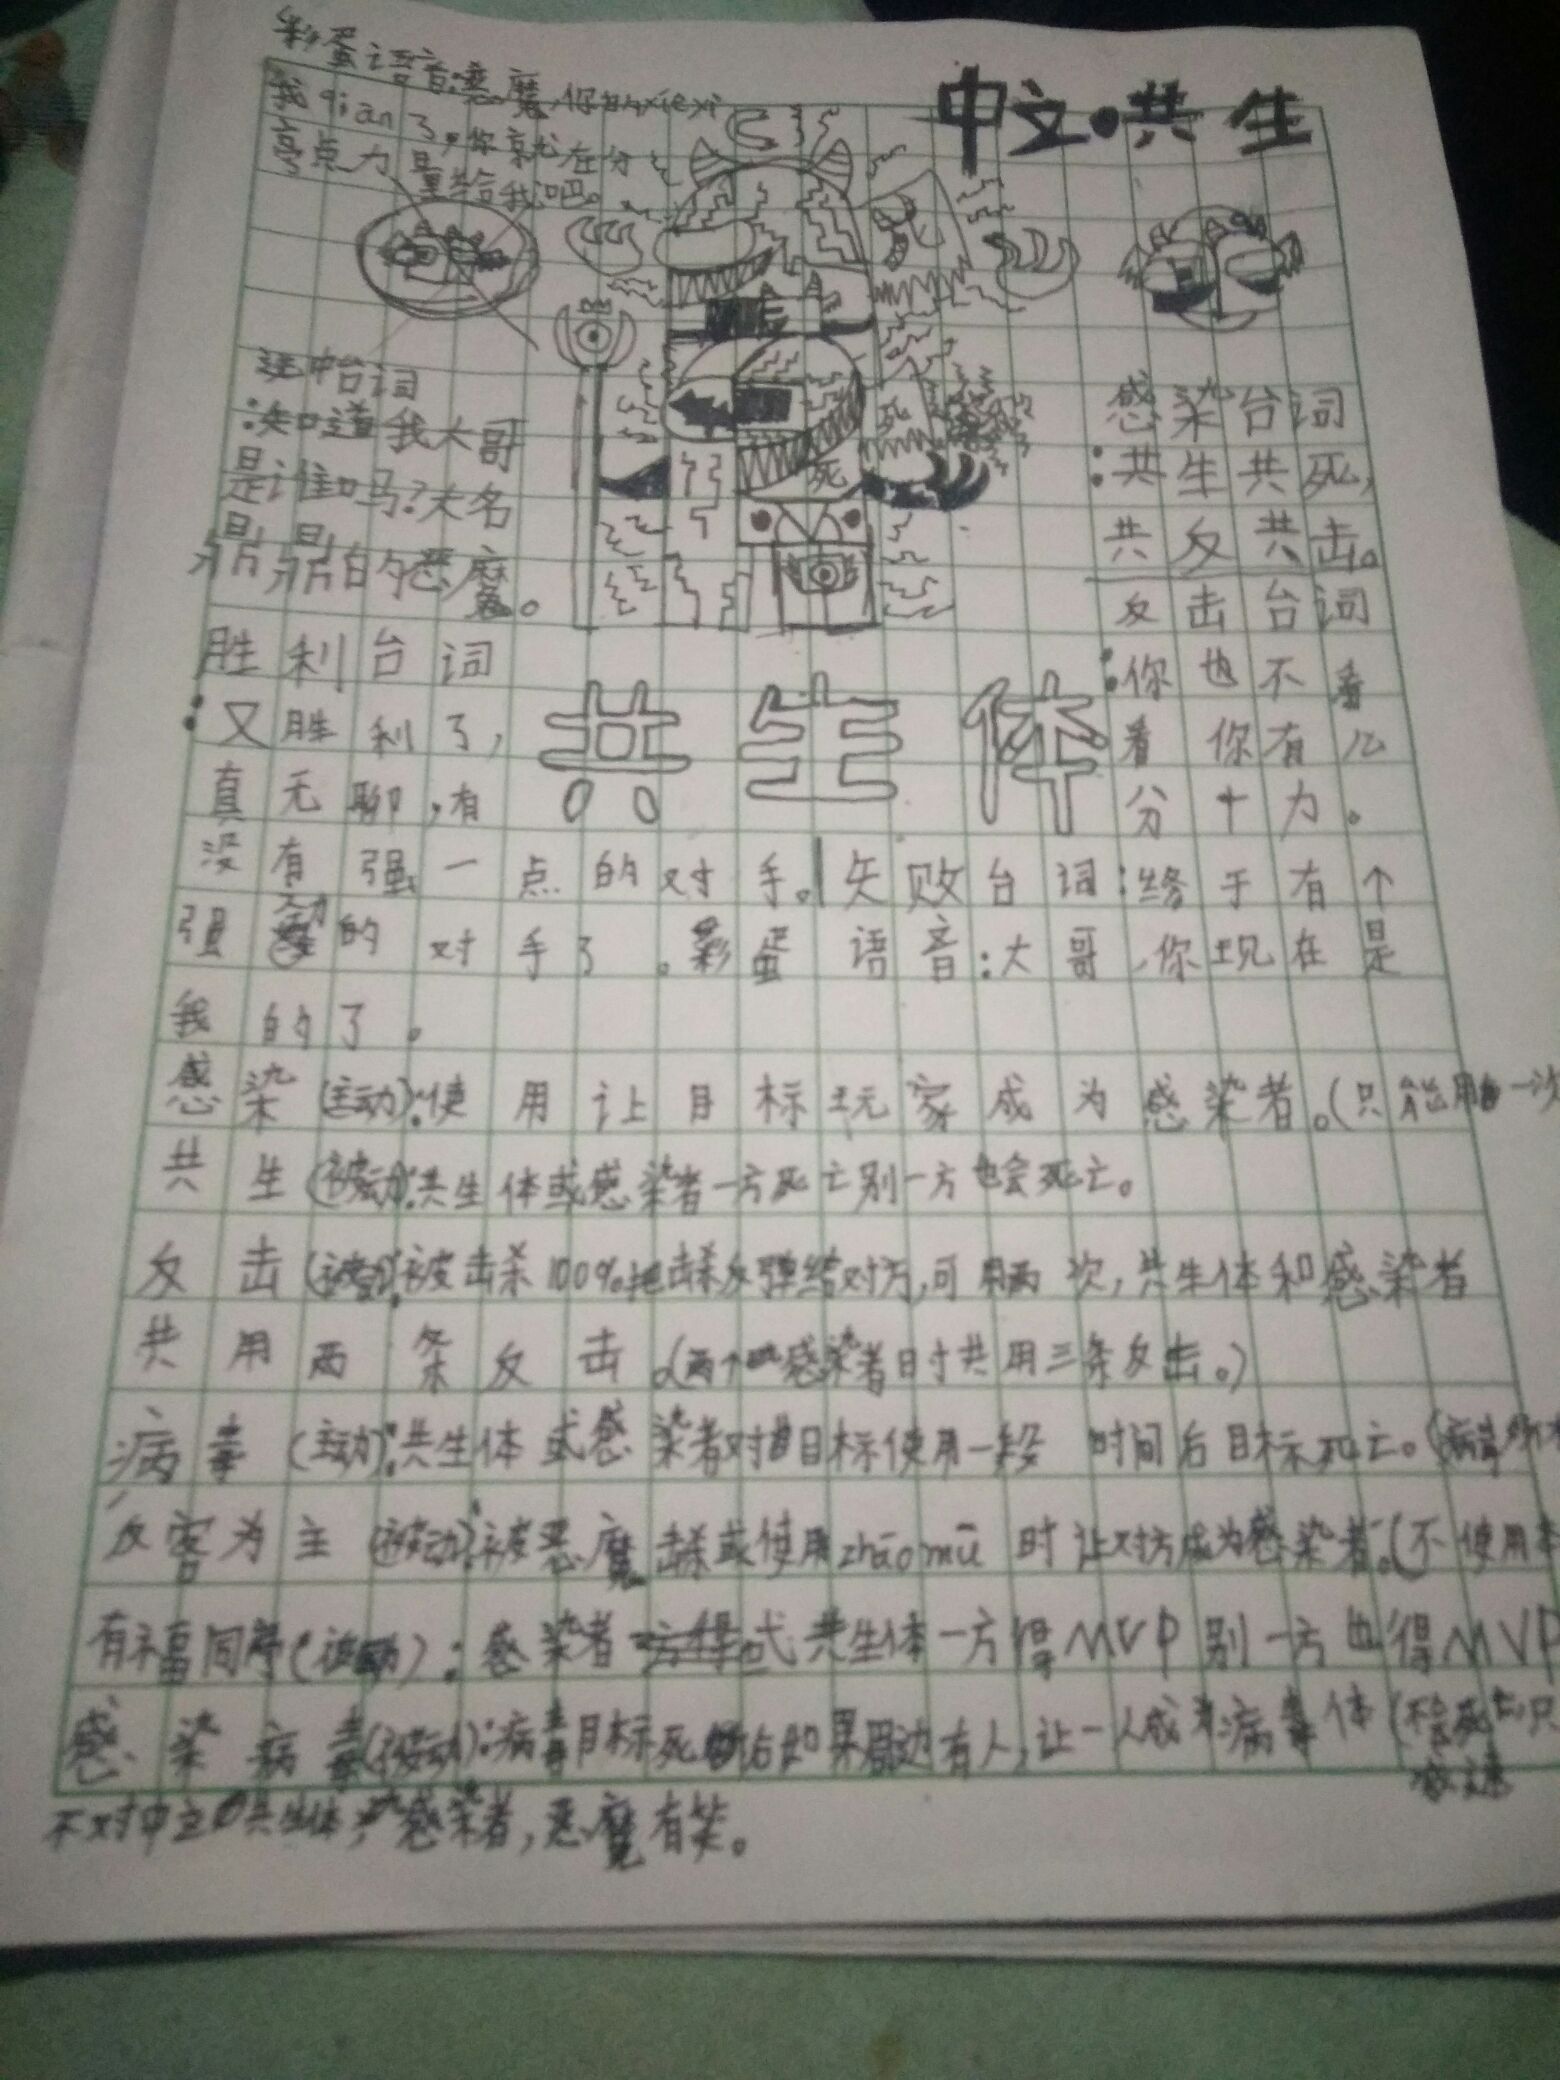 彩蛋语音:恶魔,你的xiexi
我qian了。你就在分
亮点力量给我吧。
中文·共生
选中台词
:知道我大哥
是谁吗?大名
鼎鼎的恶魔。
感染台词
:共生共死,
共反共击。
反击台词
:你也不看
看你有几
分十力。
死
死
死
共生体
胜利台词
:又胜利了,
真无聊,有
没有强一点的对手。
失败台词:终于有个
强劲的对手了。
彩蛋语音:大哥,你现在是
我的了。
感染(主动):使用让目标玩家成为感染者。(只能用一次
共生(被动):共生体或感染者一方死亡别一方也会死亡。
反击(被动):被击杀100%把击杀反弹给对方,可用两次,共生体和感染者
共用两条反击。(两个感染者时共用三条反击。)
病毒(主动):共生体或感染者对目标使用一段时间后目标死亡。(病毒
反客为主(被动):被恶魔击杀或使用zhāomù时让对方成为感染者。(不使用
有福同享(被动):感染者式共生体一方得MVP别一方也得MVP
感染病毒(被动):病毒目标死后如果周边有人,让一人成为病毒体(不会死亡只
不对中立共生体,感染者,恶魔有笑。